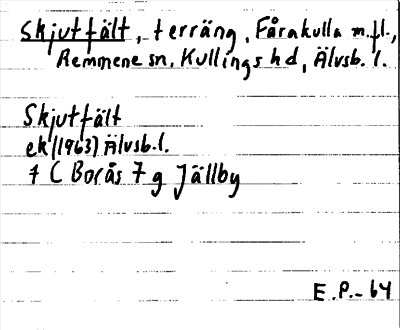 Skjutfält, terräng, Fårakulla m.fl.,
Remmene sn, Kullings hd, Älvsb. l.
Skjutfält
ek (1963) Älvsb.l.
7 C Borås 7 g Jällby
E.P.-64